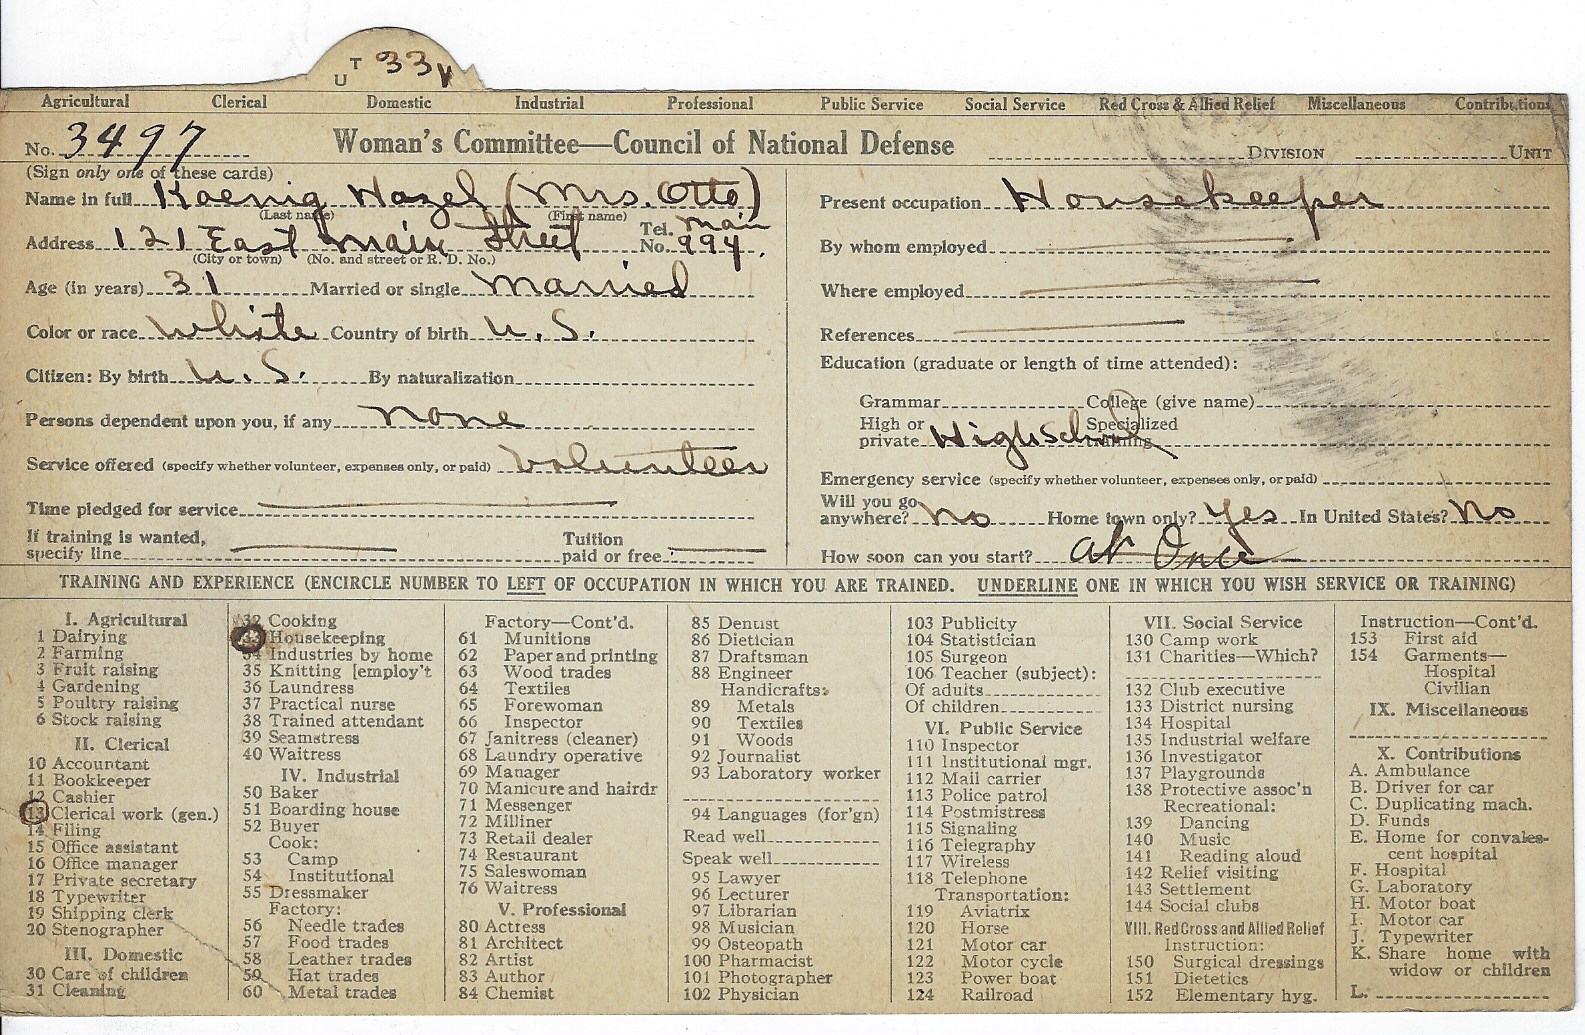 U T 33 v
Agricultural Clerical Domestic Industrial Professional Public Service Social Service Red Cross & Allied Relief Miscellaneous Contributions
No. 3497 Woman's Committee—Council of National Defense DIVISION UNIT
(Sign only one of these cards)
Name in full Koenig Hazel (Mrs. Otto)
(Last name) (First name)
Address 121 East Main Street Tel. No. Main 994.
(City or town) (No. and street or R. D. No.)
Age (in years) 31 Married or single Married
Color or race White Country of birth U.S.
Citizen: By birth U.S. By naturalization
Persons dependent upon you, if any none
Service offered (specify whether volunteer, expenses only, or paid) Volunteer
Time pledged for service
If training is wanted, specify line Tuition paid or free:
Present occupation Housekeeper
By whom employed
Where employed
References
Education (graduate or length of time attended):
Grammar College (give name)
High or private High School Specialized training
Emergency service (specify whether volunteer, expenses only, or paid)
Will you go anywhere? No Home town only? Yes In United States? No
How soon can you start? at Once
TRAINING AND EXPERIENCE (ENCIRCLE NUMBER TO LEFT OF OCCUPATION IN WHICH YOU ARE TRAINED. UNDERLINE ONE IN WHICH YOU WISH SERVICE OR TRAINING)
I. Agricultural
1 Dairying
2 Farming
3 Fruit raising
4 Gardening
5 Poultry raising
6 Stock raising
II. Clerical
10 Accountant
11 Bookkeeper
12 Cashier
13 Clerical work (gen.)
14 Filing
15 Office assistant
16 Office manager
17 Private secretary
18 Typewriter
19 Shipping clerk
20 Stenographer
III. Domestic
30 Care of children
31 Cleaning
32 Cooking
33 Housekeeping
34 Industries by home
35 Knitting [employ't
36 Laundress
37 Practical nurse
38 Trained attendant
39 Seamstress
40 Waitress
IV. Industrial
50 Baker
51 Boarding house
52 Buyer
Cook:
53 Camp
54 Institutional
55 Dressmaker
Factory:
56 Needle trades
57 Food trades
58 Leather trades
59 Hat trades
60 Metal trades
Factory—Cont'd.
61 Munitions
62 Paper and printing
63 Wood trades
64 Textiles
65 Forewoman
66 Inspector
67 Janitress (cleaner)
68 Laundry operative
69 Manager
70 Manicure and hairdr
71 Messenger
72 Milliner
73 Retail dealer
74 Restaurant
75 Saleswoman
76 Waitress
V. Professional
80 Actress
81 Architect
82 Artist
83 Author
84 Chemist
85 Dentist
86 Dietician
87 Draftsman
88 Engineer
Handicrafts:
89 Metals
90 Textiles
91 Woods
92 Journalist
93 Laboratory worker
94 Languages (for'gn)
Read well
Speak well
95 Lawyer
96 Lecturer
97 Librarian
98 Musician
99 Osteopath
100 Pharmacist
101 Photographer
102 Physician
103 Publicity
104 Statistician
105 Surgeon
106 Teacher (subject):
Of adults
Of children
VI. Public Service
110 Inspector
111 Institutional mgr.
112 Mail carrier
113 Police patrol
114 Postmistress
115 Signaling
116 Telegraphy
117 Wireless
118 Telephone
Transportation:
119 Aviatrix
120 Horse
121 Motor car
122 Motor cycle
123 Power boat
124 Railroad
VII. Social Service
130 Camp work
131 Charities—Which?
132 Club executive
133 District nursing
134 Hospital
135 Industrial welfare
136 Investigator
137 Playgrounds
138 Protective assoc'n
Recreational:
139 Dancing
140 Music
141 Reading aloud
142 Relief visiting
143 Settlement
144 Social clubs
VIII. Red Cross and Allied Relief
Instruction:
150 Surgical dressings
151 Dietetics
152 Elementary hyg.
Instruction—Cont'd.
153 First aid
154 Garments—
Hospital
Civilian
IX. Miscellaneous
X. Contributions
A. Ambulance
B. Driver for car
C. Duplicating mach.
D. Funds
E. Home for convales-
cent hospital
F. Hospital
G. Laboratory
H. Motor boat
I. Motor car
J. Typewriter
K. Share home with
widow or children
L.